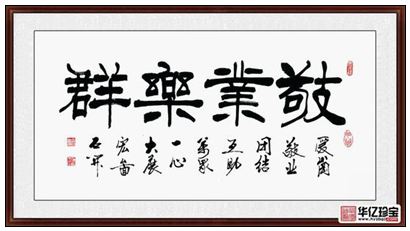 敬業樂群
爱岗
敬业
团结
互助
萬众
一心
大展
宏畵
石开
华亿珍宝